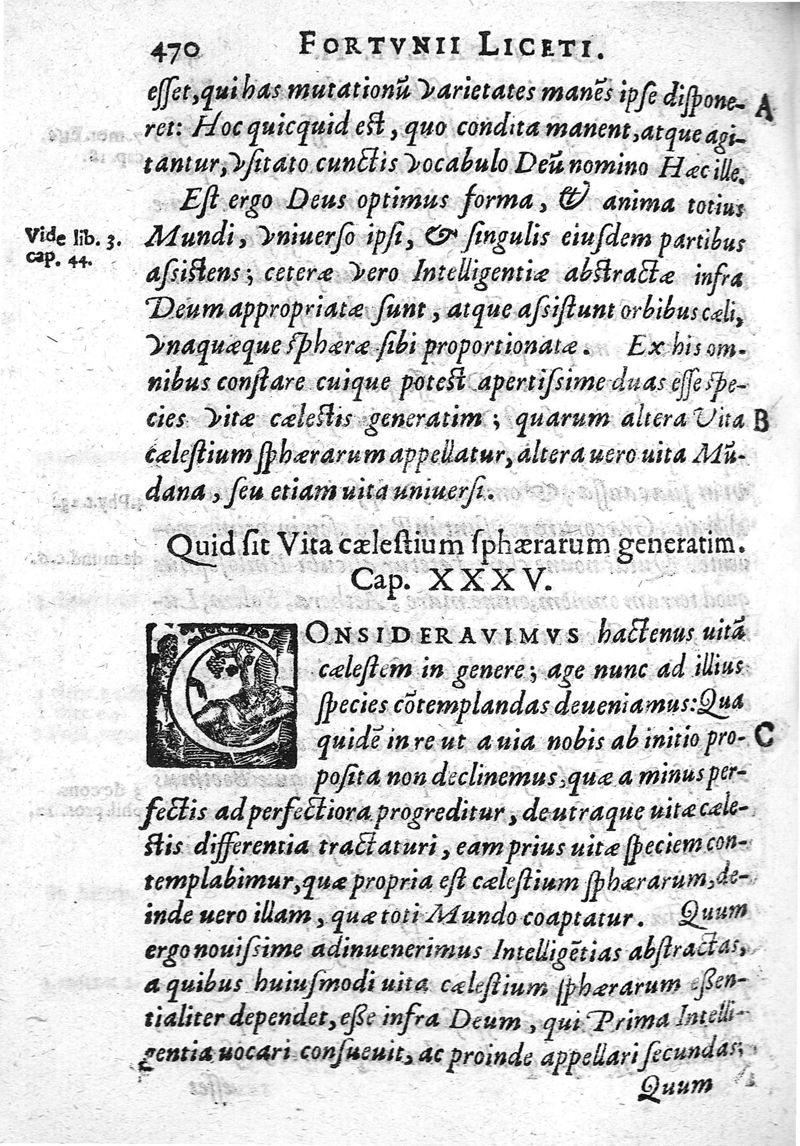 470 FORTVNII LICETI.
esset, qui has mutationũ varietates manẽs ipse dispone- A
ret: Hoc quicquid est, quo condita manent, atque agi-
tantur, vsitato cunctis vocabulo Deũ nomino Hæc ille.
Est ergo Deus optimus forma, & anima totius
Vide lib. 3.
cap. 44.
Mundi, vniuerso ipsi, & singulis eiusdem partibus
assistens; ceteræ vero Intelligentiæ abstractæ infra
Deum appropriatæ sunt, atque assistunt orbibus cæli,
vnaquæque sphæræ sibi proportionatæ. Ex his om-
nibus constare cuique potest apertissime duas esse spe-
cies vitæ cælestis generatim; quarum altera Vita B
cælestium sphærarum appellatur, altera uero uita Mũ-
dana, seu etiam uita uniuersi.
Quid sit Vita cælestium sphærarum generatim.
Cap. XXXV.
CONSIDERAVIMVS hactenus uitã
cælestem in genere; age nunc ad illius
species cõtemplandas deueniamus: Qua
quidẽ in re ut a uia nobis ab initio pro- C
posita non declinemus, quæ a minus per-
fectis ad perfectiora progreditur, de utraque uitæ cæle-
stis differentia tractaturi, eam prius uitæ speciem con-
templabimur, quæ propria est cælestium sphærarum, de-
inde uero illam, quæ toti Mundo coaptatur. Quum
ergo nouissime adinuenerimus Intelligẽtias abstractas,
a quibus huiusmodi uita cælestium sphærarum essen-
tialiter dependet, esse infra Deum, qui Prima Intelli-
gentia uocari consueuit, ac proinde appellari secundas;
Quum